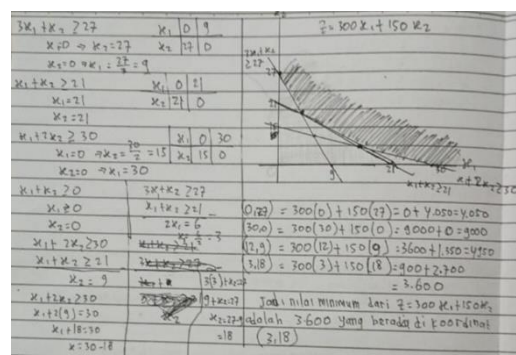 3x₁+x₂ ≥ 27
x₁ | 0 | 9
x₂ | 27 | 0
x₁=0 → x₂=27
x₂=0 → x₁ = 27/3 = 9
x₁+x₂ ≥ 21
x₁ | 0 | 21
x₂ | 21 | 0
x₁=21
x₂=21
x₁+2x₂ ≥ 30
x₁ | 0 | 30
x₂ | 15 | 0
x₁=0 → x₂ = 30/2 = 15
x₂=0 → x₁=30
z = 300x₁ + 150x₂
≥27
9
21
30
x₁
x₁+x₂≥21
x+2x₂≥30
x₁+x₂ ≥ 0
x₁≥0
x₂=0
x₁+2x₂≥30
x₁+x₂ ≥ 21
x₂ = 9
x₁+2x₂≥30
x₁+2(9)=30
x₁+18=30
x=30-18
3x₁+x₂ ≥27
x₁+x₂ ≥21
2x₁=6
3(3)+x₂=27
9+x₂=27
x₂=27-9
=18
(0,27) = 300(0)+150(27) = 0+4.050=4.050
(30,0) = 300(30)+150(0) = 9000+0=9000
(12,9) = 300(12)+150(9) = 3600+1.350=4950
(3,18) = 300(3)+150(18) = 900+2.700
= 3.600
Jadi nilai minimum dari z=300x₁+150x₂
adalah 3.600 yang berada di koordinat
(3,18)